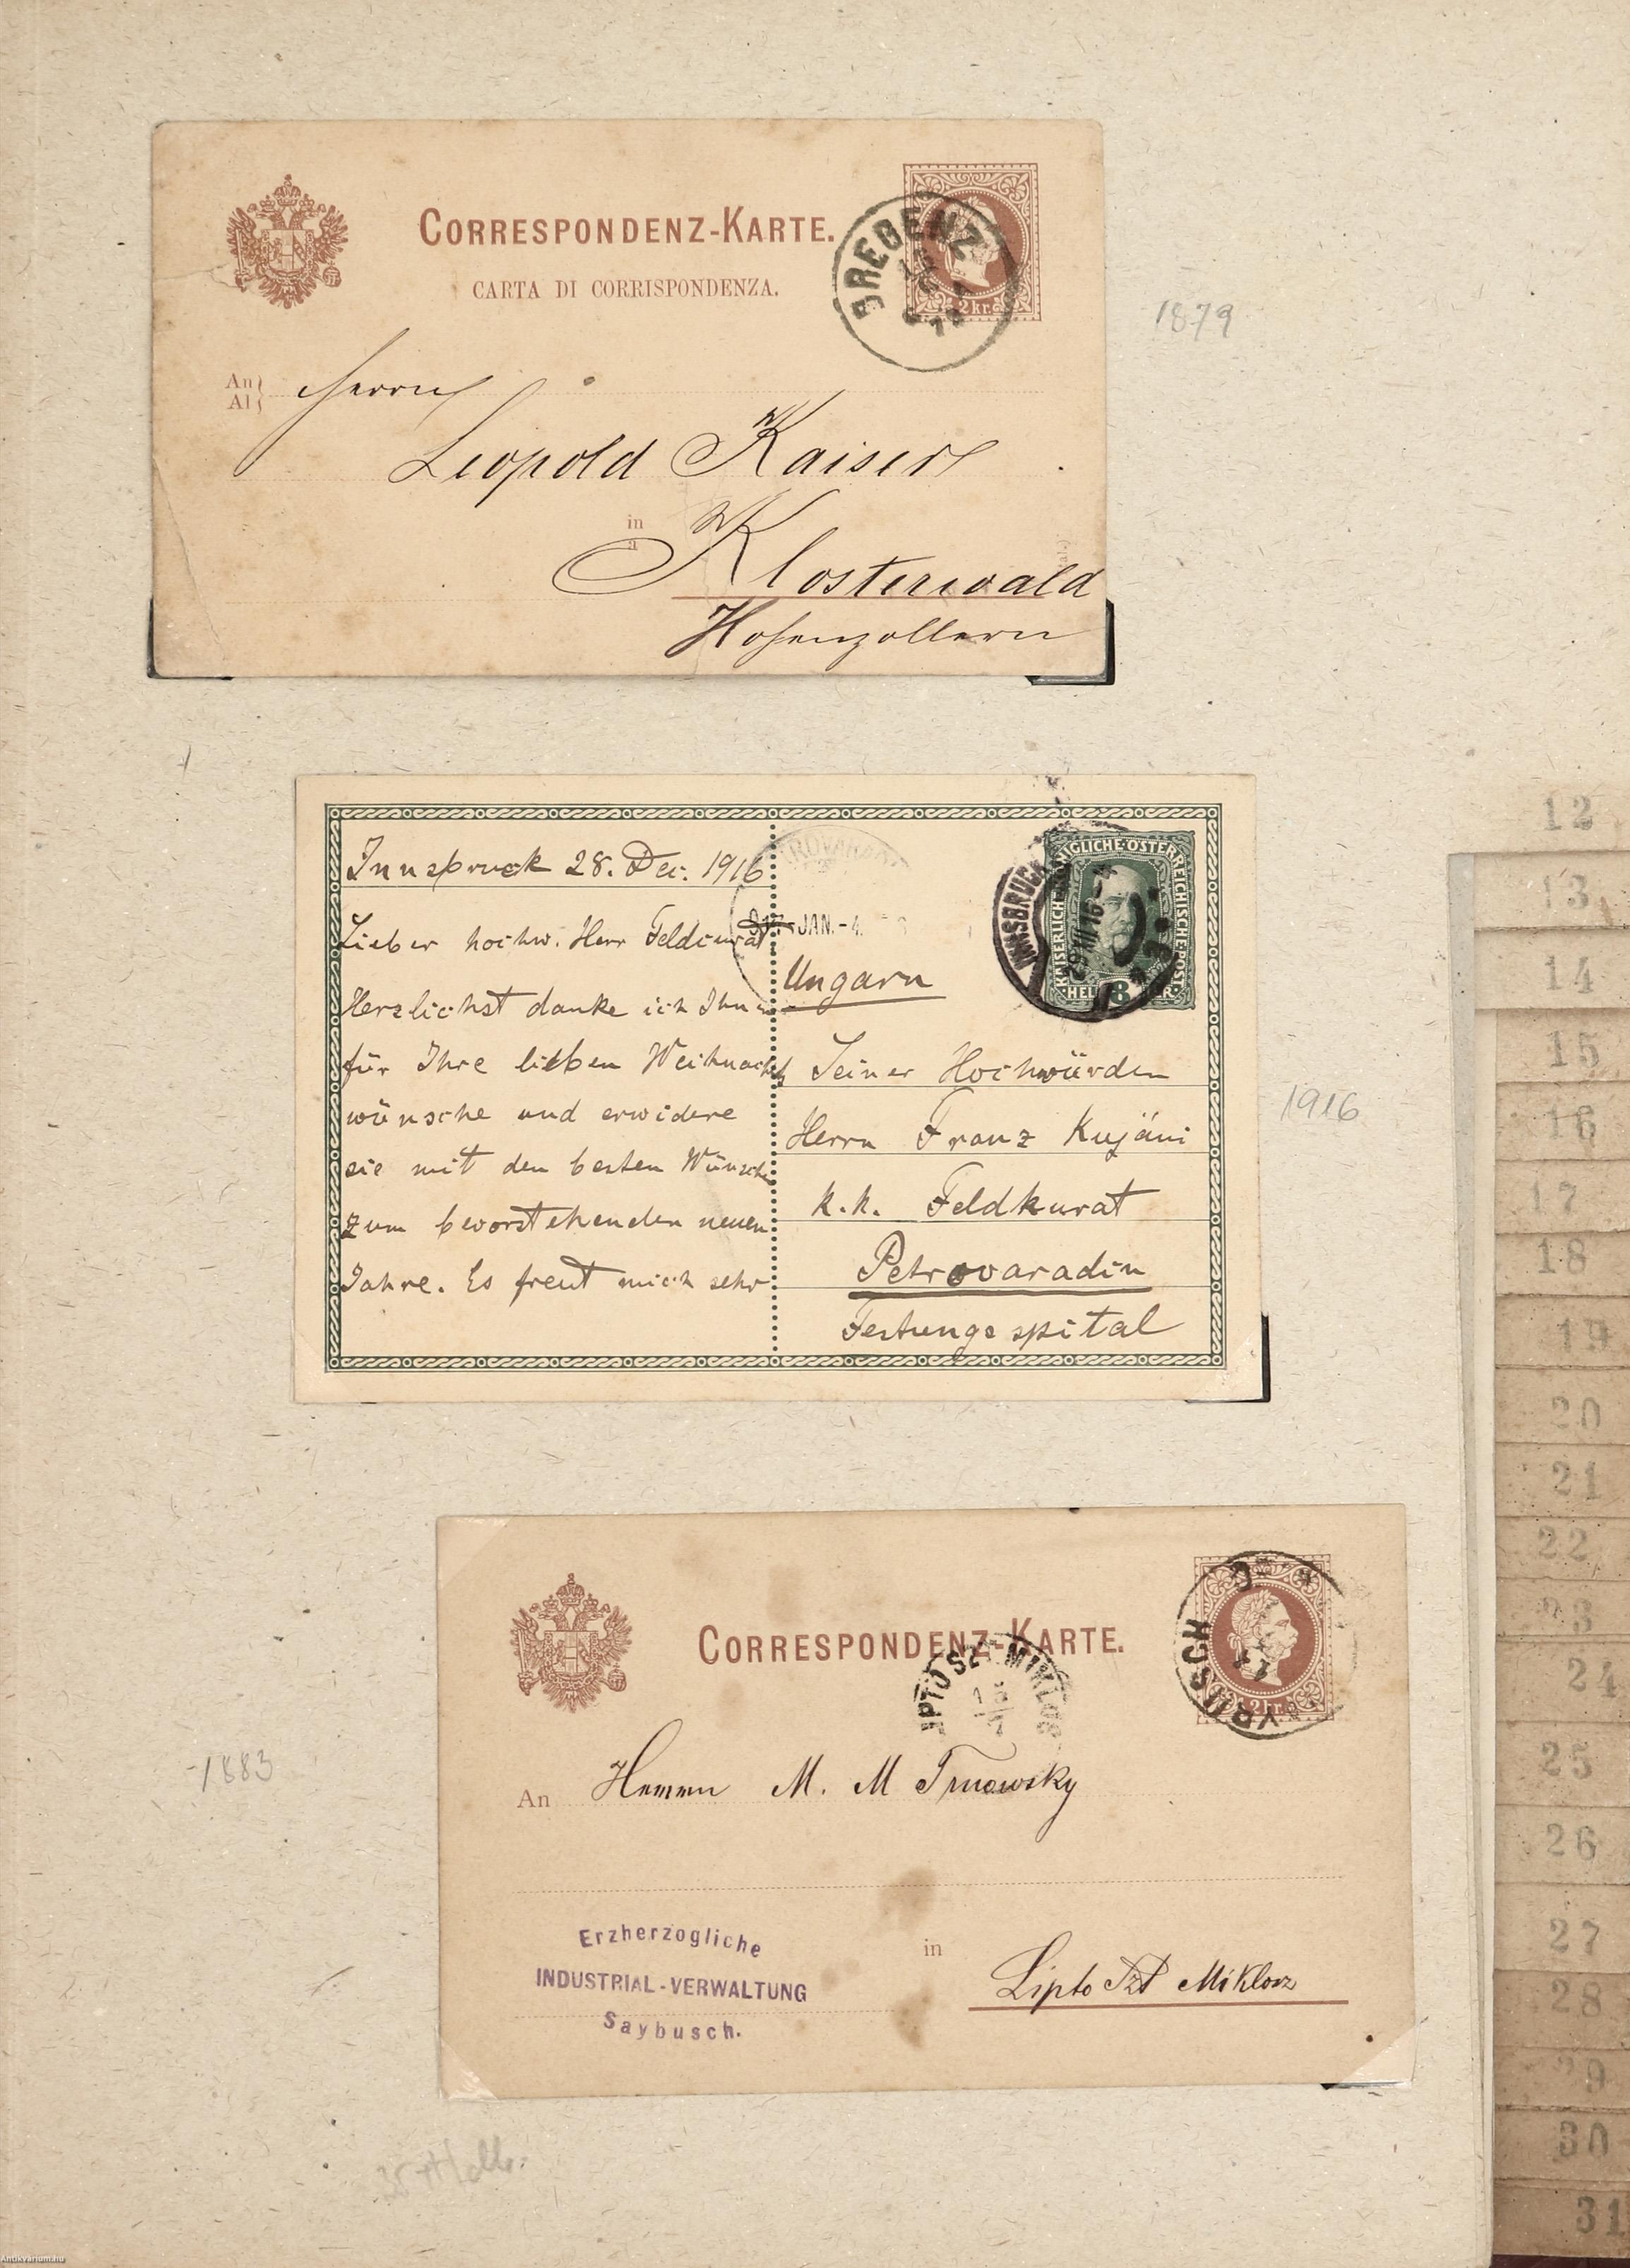 CORRESPONDENZ-KARTE.
CARTA DI CORRISPONDENZA.
BREGENZ
2 kr.
1879
An
Al
Herrn
Leopold Kaiser
in
a
Klosterwald
Hohenzollern
Innsbruck 28. Dez. 1916
Lieber hochw. Herr Feldcurat
Herzlichst danke ich Ihnen
für Ihre lieben Weihnachts
wünsche und erwidere
sie mit den besten Wünschen
zum bevorstehenden neuen
Jahre. Es freut mich sehr
917 JAN.-4.
INNSBRUCK
29 XII 16-4
KAISERLICH KÖNIGLICHE ÖSTERREICHISCHE POST
HELLER
8
Ungarn
Seiner Hochwürden
Herrn Franz Kujáni
k.k. Feldkurat
Petrovaradin
Festungsspital
1916
CORRESPONDENZ-KARTE.
2 kr.
LIPTÓ SZT MIKLÓS
1883
An
Herrn M. M Trnowsky
in
Lipto Szt Miklosz
Erzherzogliche
INDUSTRIAL-VERWALTUNG
Saybusch.
12
13
14
15
16
17
18
19
20
21
22
23
24
25
26
27
28
29
30
31
Antikvarium.hu